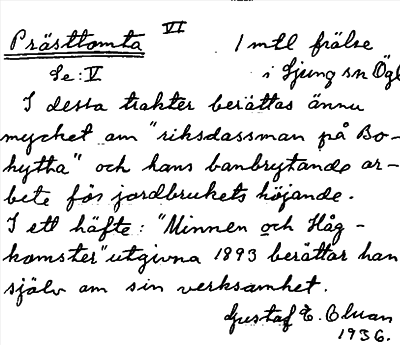 Prästtomta VI 1 mtl frälse
Se: V i Ljung sn Ögl
I dessa trakter berättas ännu
mycket om "riksdassman på Bo-
hytta" och hans banbrytande ar-
bete för jordbrukets höjande.
I ett häfte: "Minnen och Håg-
komster" utgivna 1893 berättar han
själv om sin verksamhet.
Gustaf E.
1936.